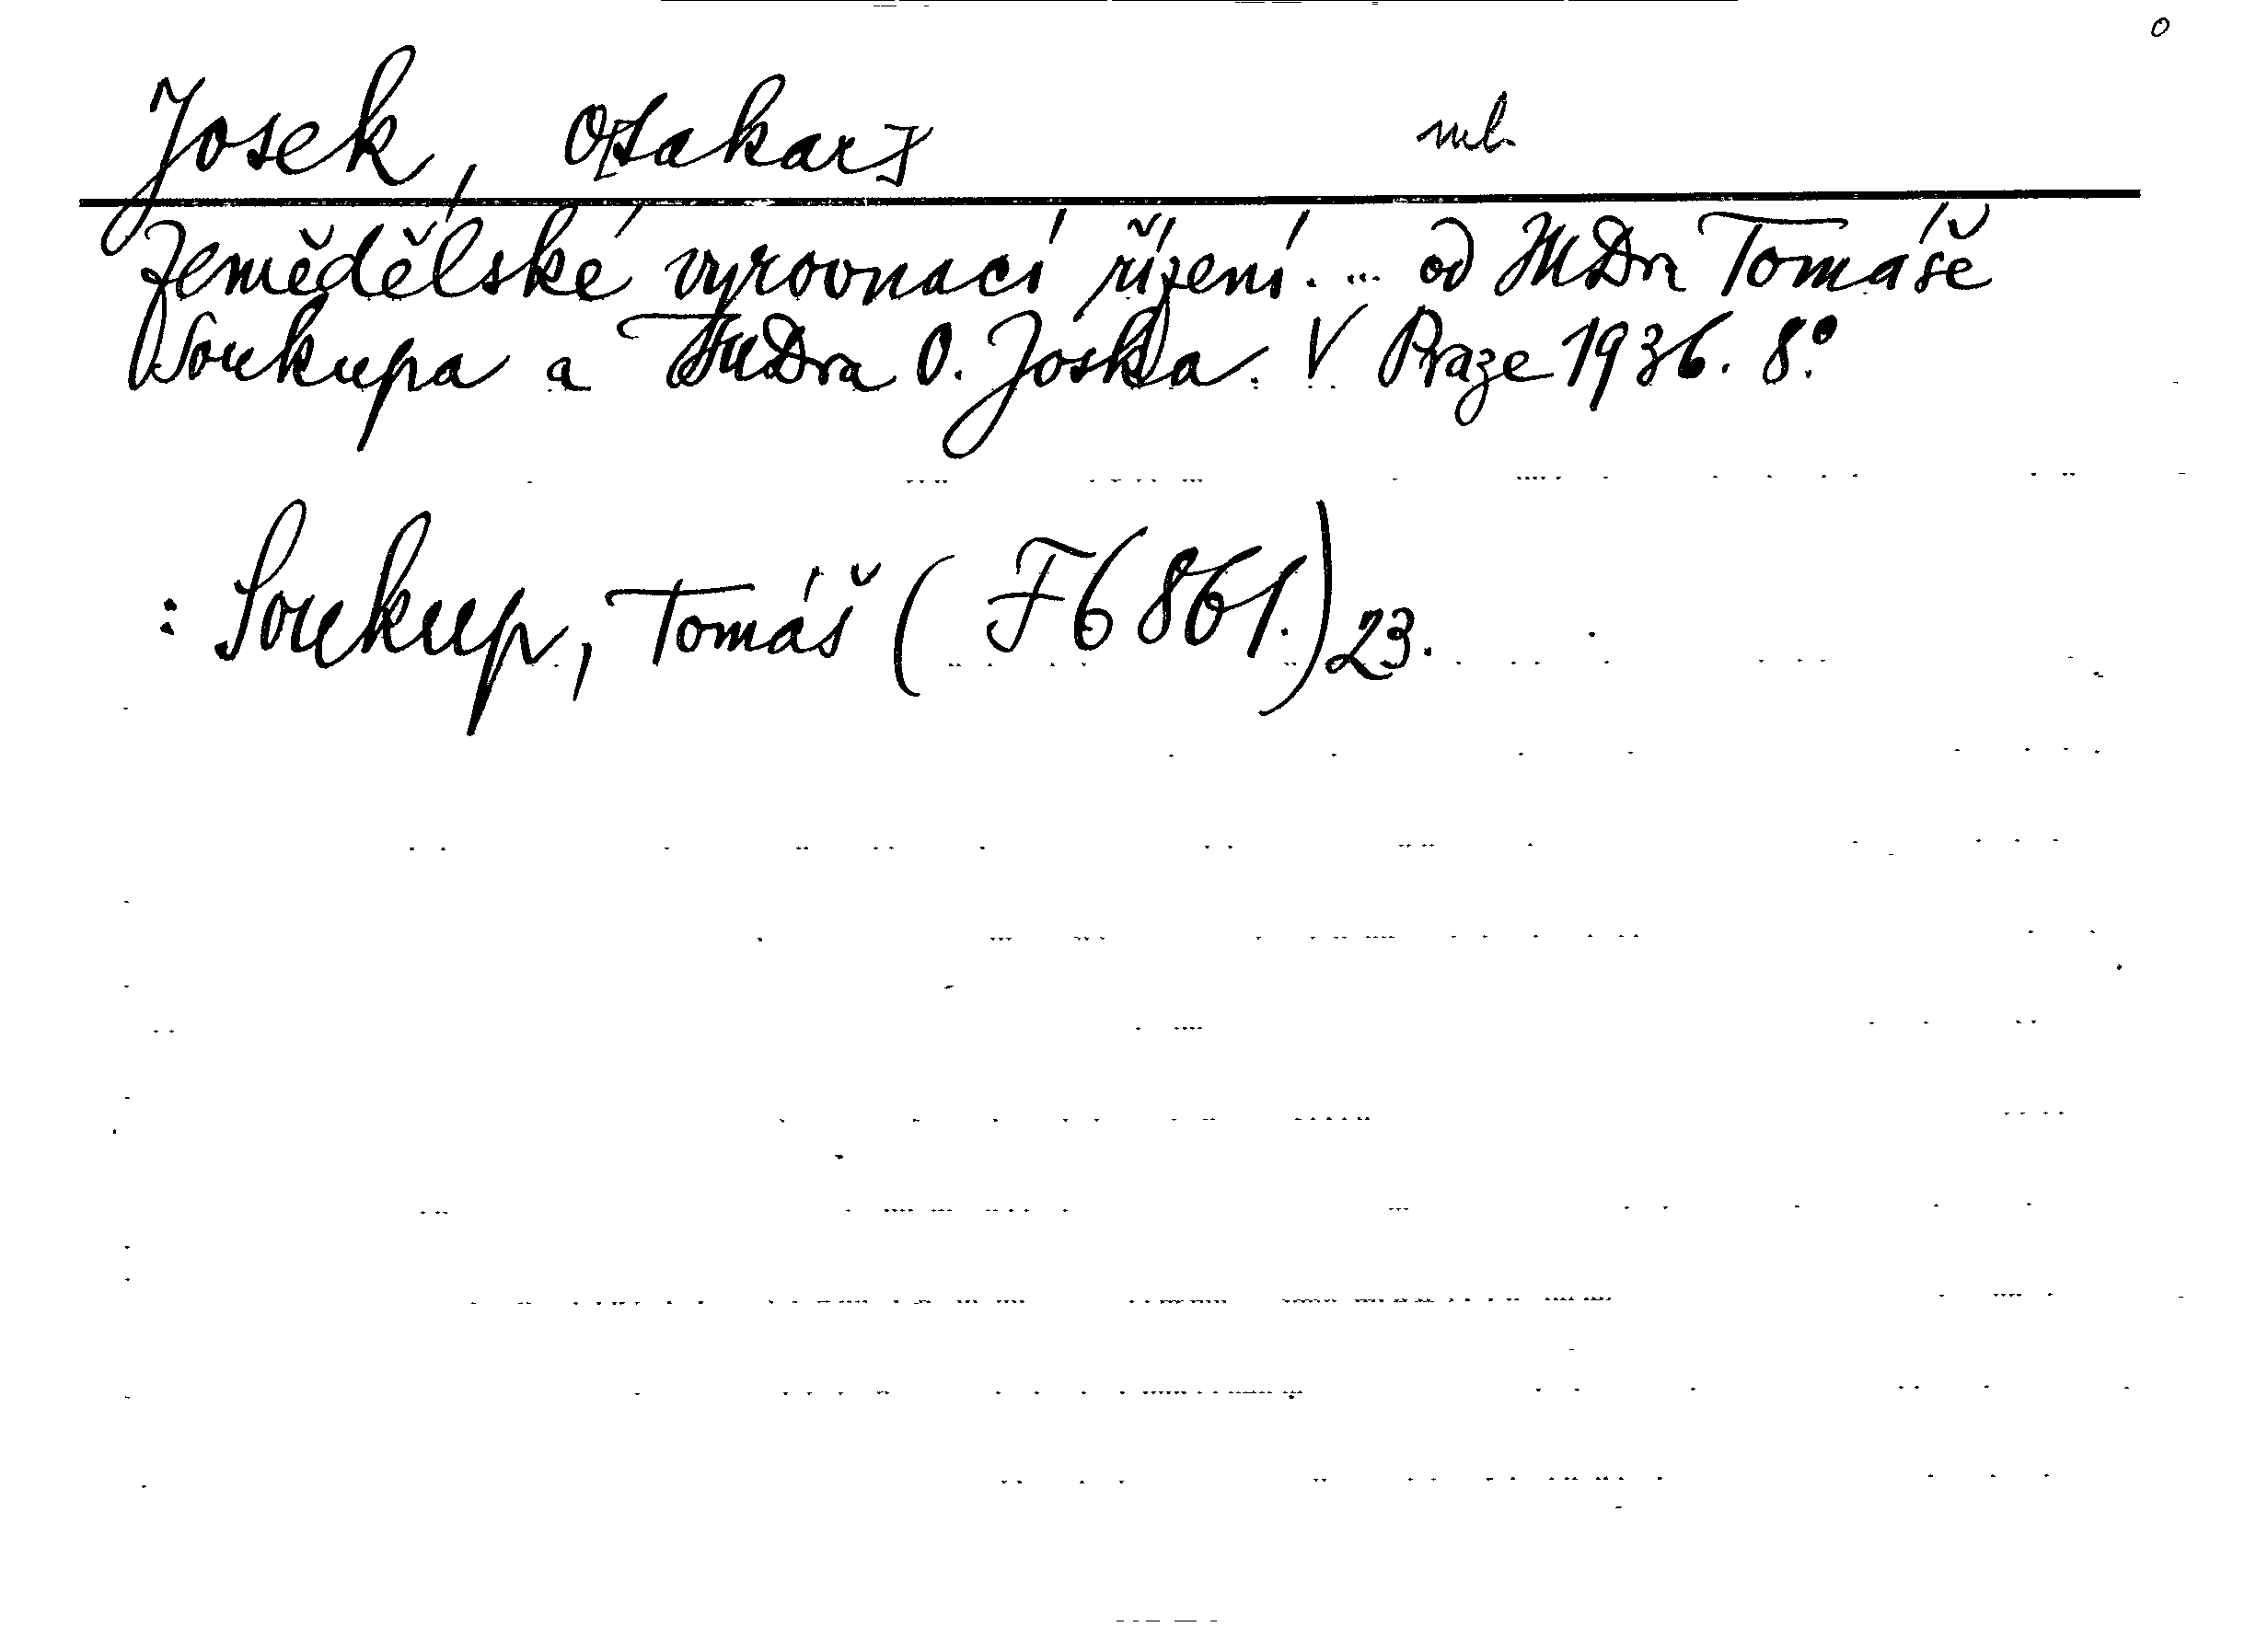 Josek, O[takar] mb.
Zemědělské vyrovnací řízení. ... od JUDra Tomáše
Soukupa a JUDra O. Joska. V Praze 1936. 8°.
: Soukup, Tomáš (F6861.) 23.